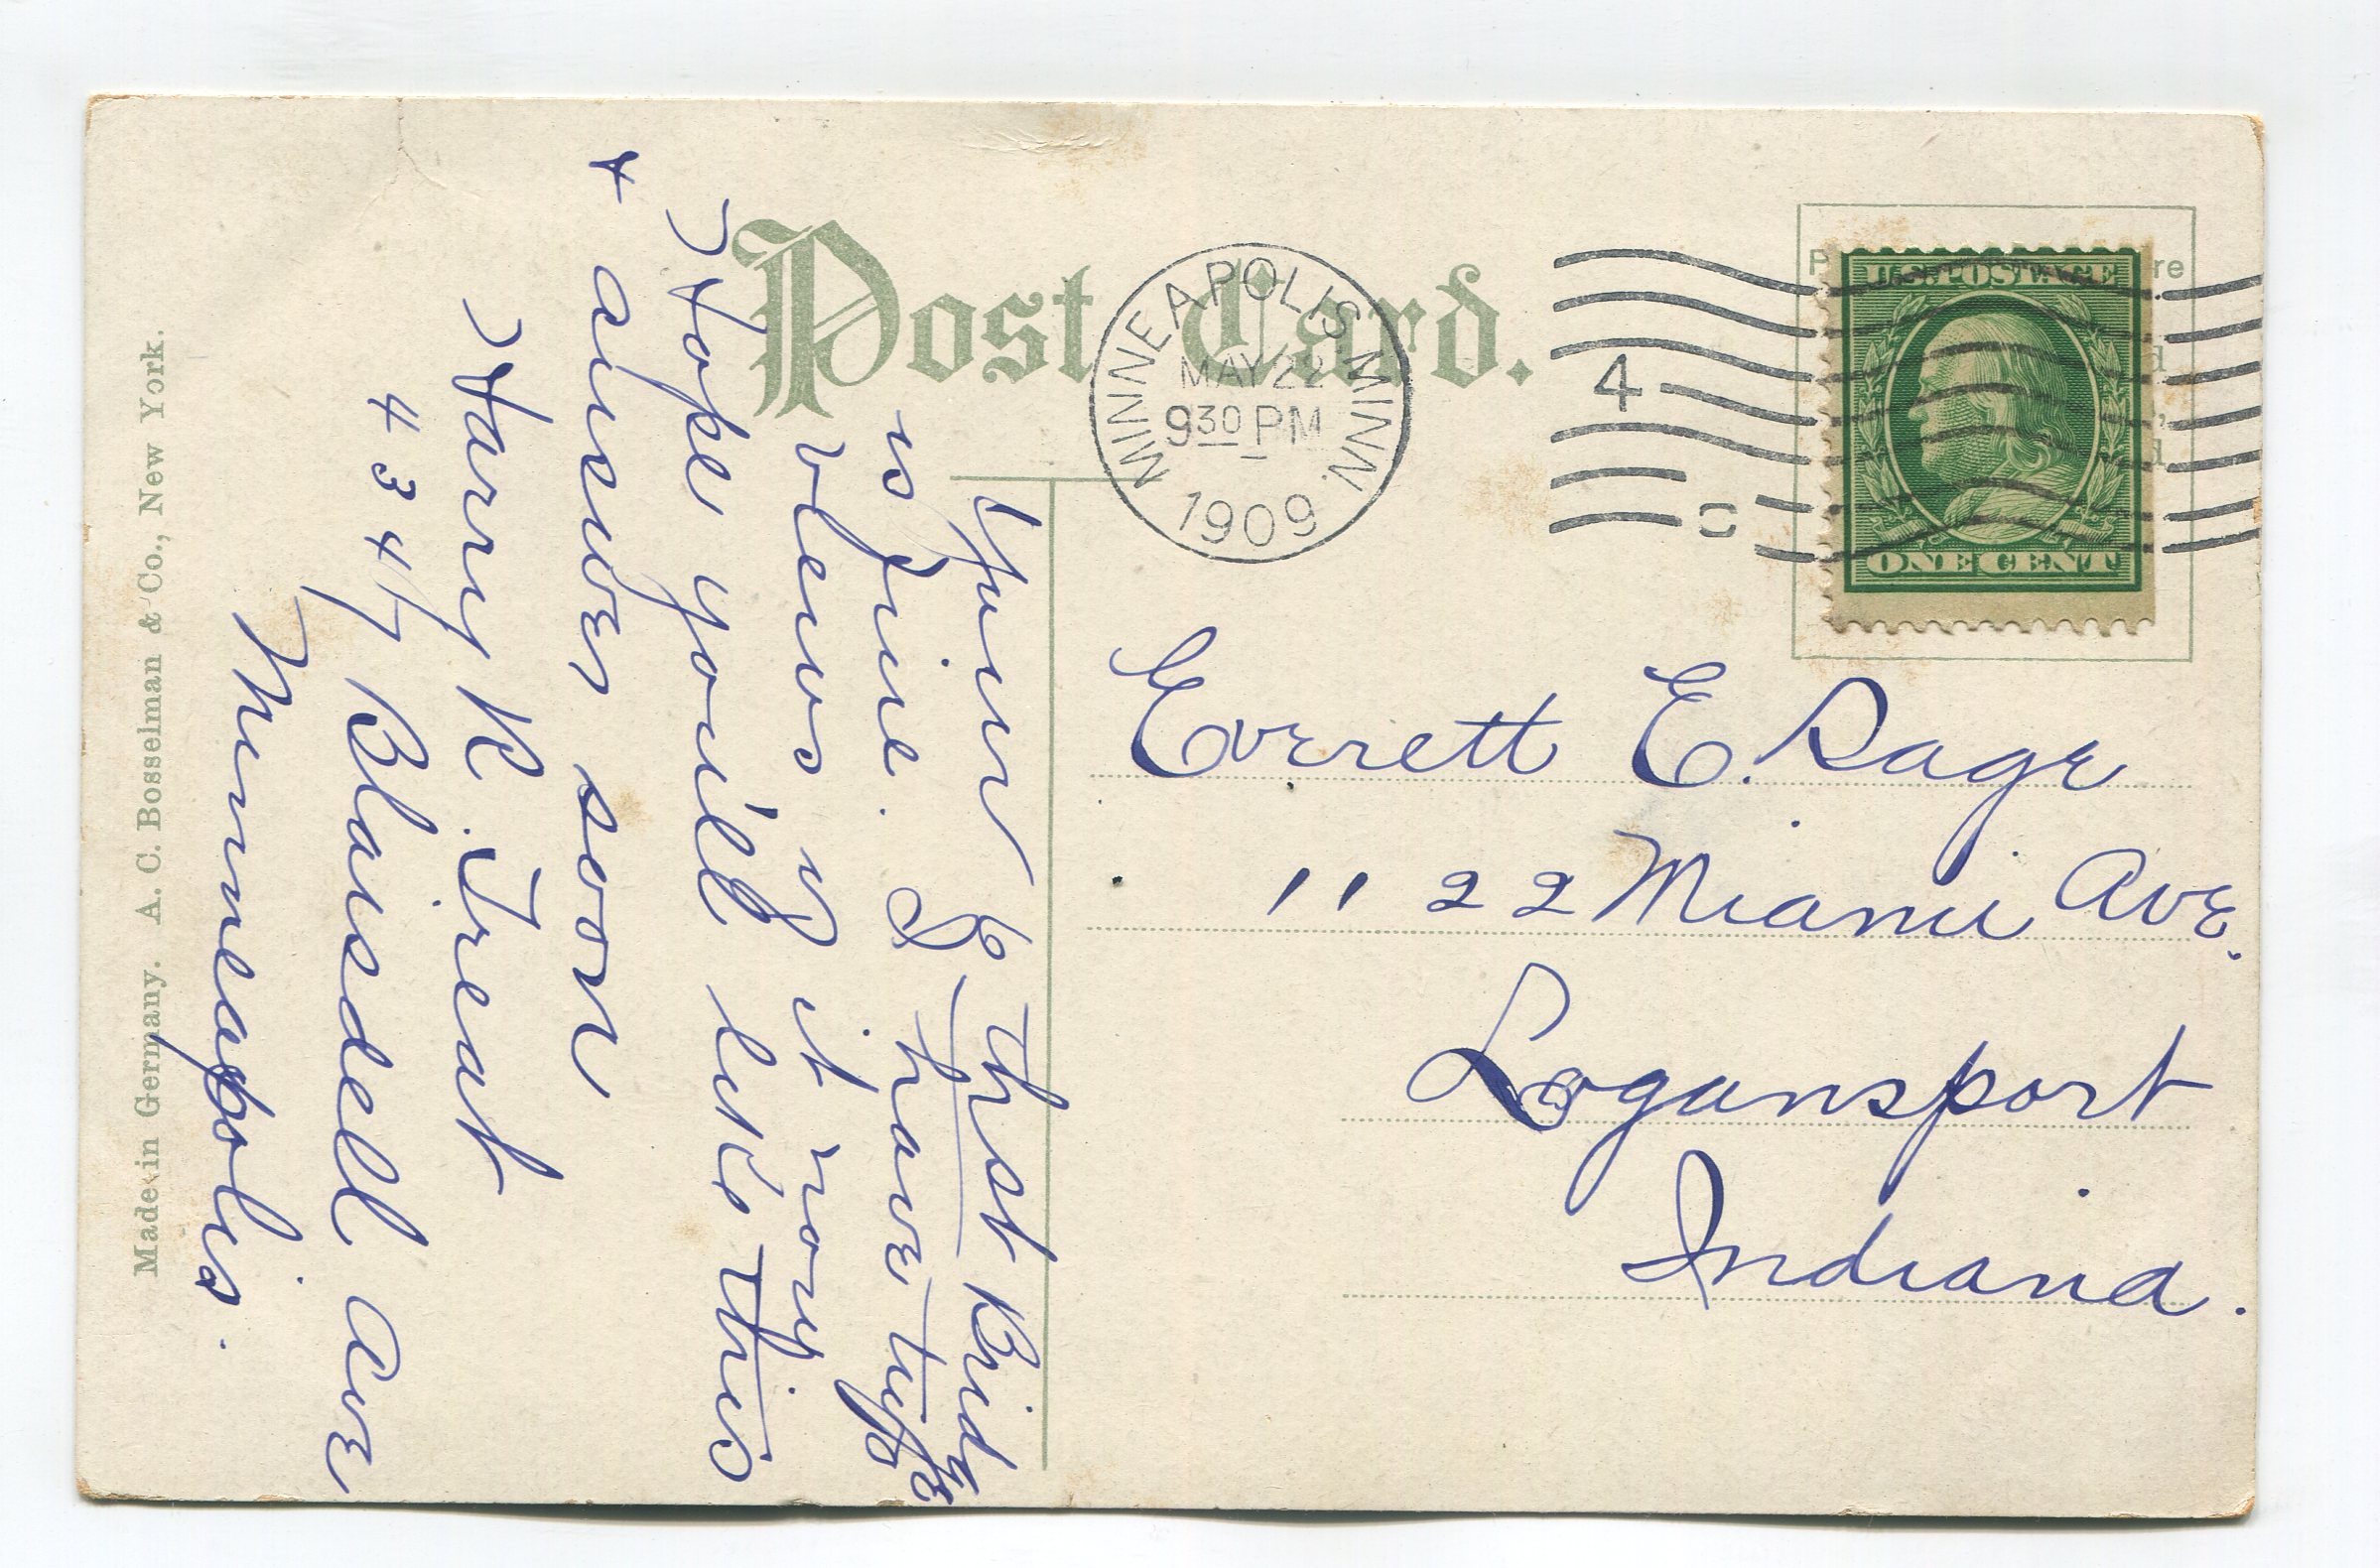 Post Card.
MINNEAPOLIS MINN.
MAY 22
9 30 PM
1909
4
C
U.S. POSTAGE
ONE CENT
Everett E. Sage
1122 Miami Ave.
Logansport
Indiana.
Your 6 th st Bridge
is fine. I have
views of it
Hope you'll like this
+ answer soon
Harry R. Treat
4347 Blaisdell Ave
Minneapolis.
Made in Germany. A. C. Bosselman & Co., New York.